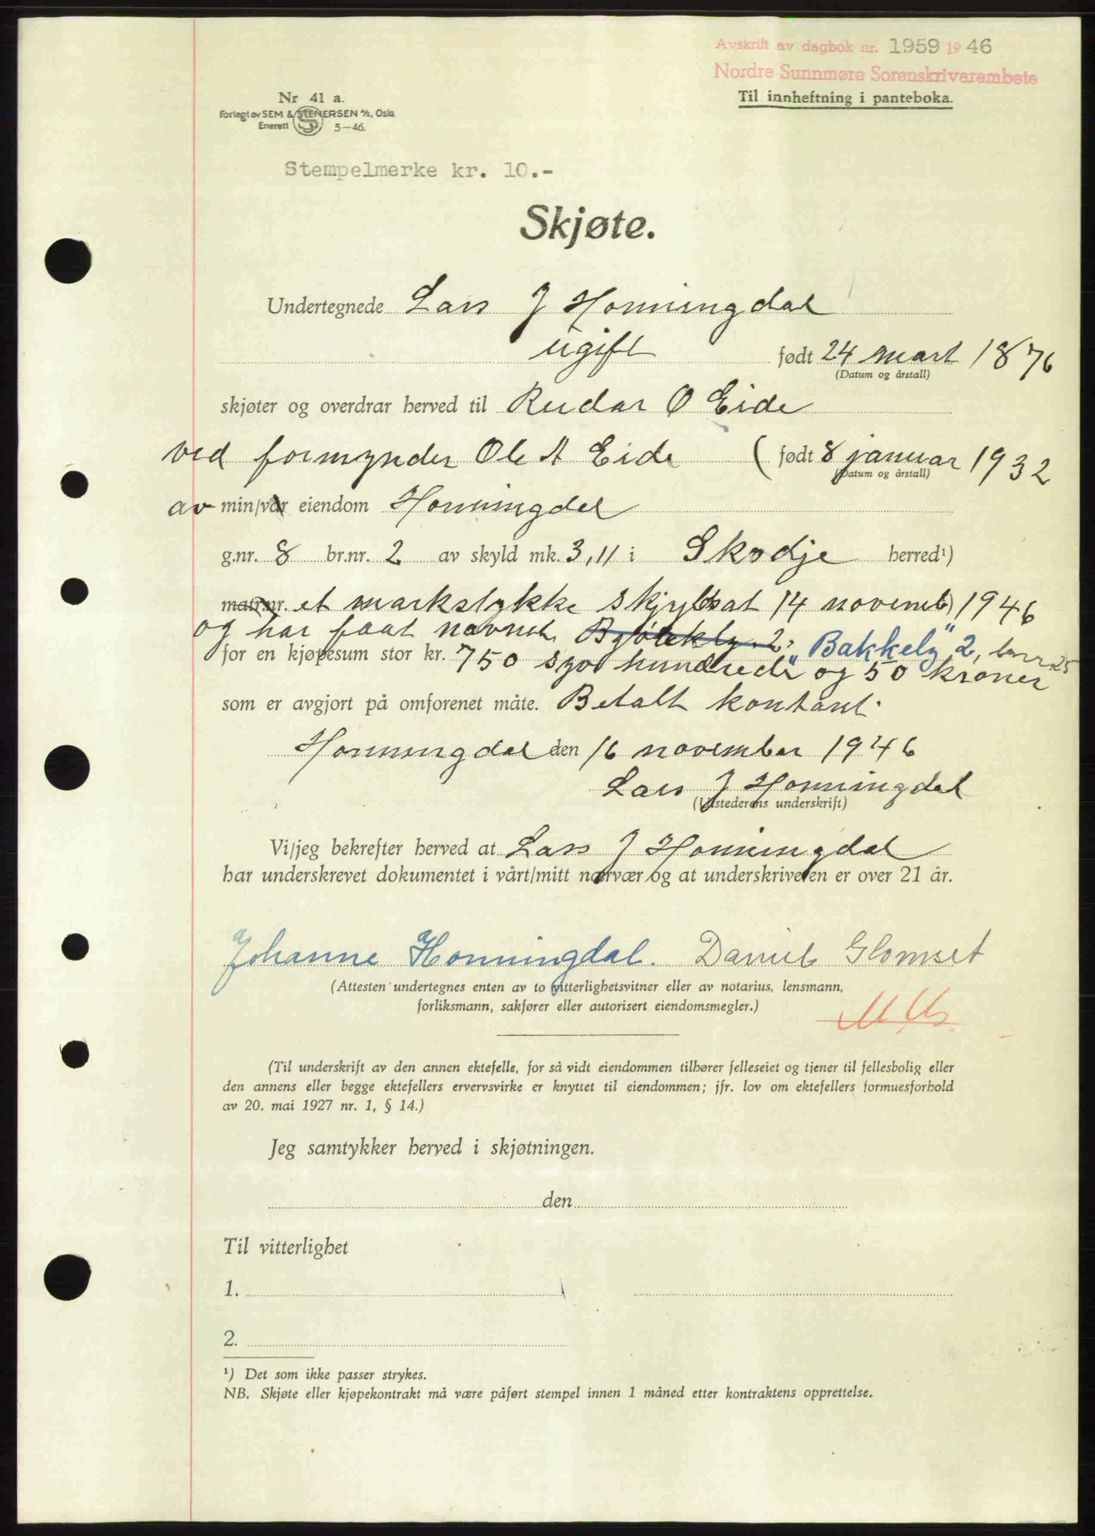 Avskrift av dagbok nr. 1959 1946
Nordre Sunnmøre Sorenskriverembete
Til innheftning i panteboka.
Nr 41 a.
Forlagt av SEM & STENERSEN A/S, Oslo
Enerett 5—46.
Stempelmerke kr. 10.-
Skjøte.
Undertegnede Lars J Honningdal
ugift født 24 mart 1876
(Datum og årstall)
skjøter og overdrar herved til Reidar O Eide
ved formynder Ole A Eide ( født 8 januar 1932
(Datum og årstall)
av min/vår eiendom Honningdal
g.nr. 8 br.nr. 2 av skyld mk. 3,11 i Skodje herred¹)
matr.nr. et markstykke skyldsat 14 novemb) 1946
og har faat navnet "Bakkely" 2, br nr 25
for en kjøpesum stor kr. 750 syv hundrede og 50 kroner
som er avgjort på omforenet måte. Betalt kontant.
Honningdal den 16 november 1946
Lars J Honningdal
(Utstederens underskrift)
Vi/jeg bekrefter herved at Lars J Honningdal
har underskrevet dokumentet i vårt/mitt nærvær og at underskriveren er over 21 år.
Johanne Honningdal. Daniel Glomset
(Attesten undertegnes enten av to vitterlighetsvitner eller av notarius, lensmann,
forliksmann, sakfører eller autorisert eiendomsmegler.)
(Til underskrift av den annen ektefelle, for så vidt eiendommen tilhører felleseiet og tjener til fellesbolig eller
den annens eller begge ektefellers ervervsvirke er knyttet til eiendommen; jfr. lov om ektefellers formuesforhold
av 20. mai 1927 nr. 1, § 14.)
Jeg samtykker herved i skjøtningen.
den
Til vitterlighet
1.
2.
¹) Det som ikke passer strykes.
NB. Skjøte eller kjøpekontrakt må være påført stempel innen 1 måned etter kontraktens opprettelse.